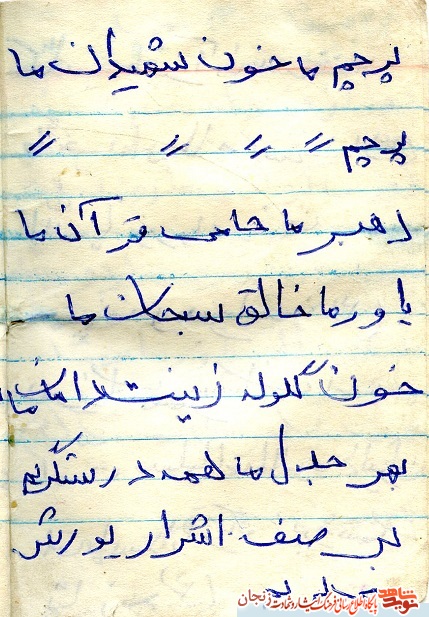 پرچم ما خون شهیدان ما
پرچم " " " "
رهبر ما حامی قرآن ما
یاور ما خالق سبحان ما
خون گلوله زینت دامان ما
بهر جدل ما همه در سنگریم
بر صف اشرار یورش
نوید شاهد
پایگاه اطلاع رسانی فرهنگ ایثار و شهادت زنجان